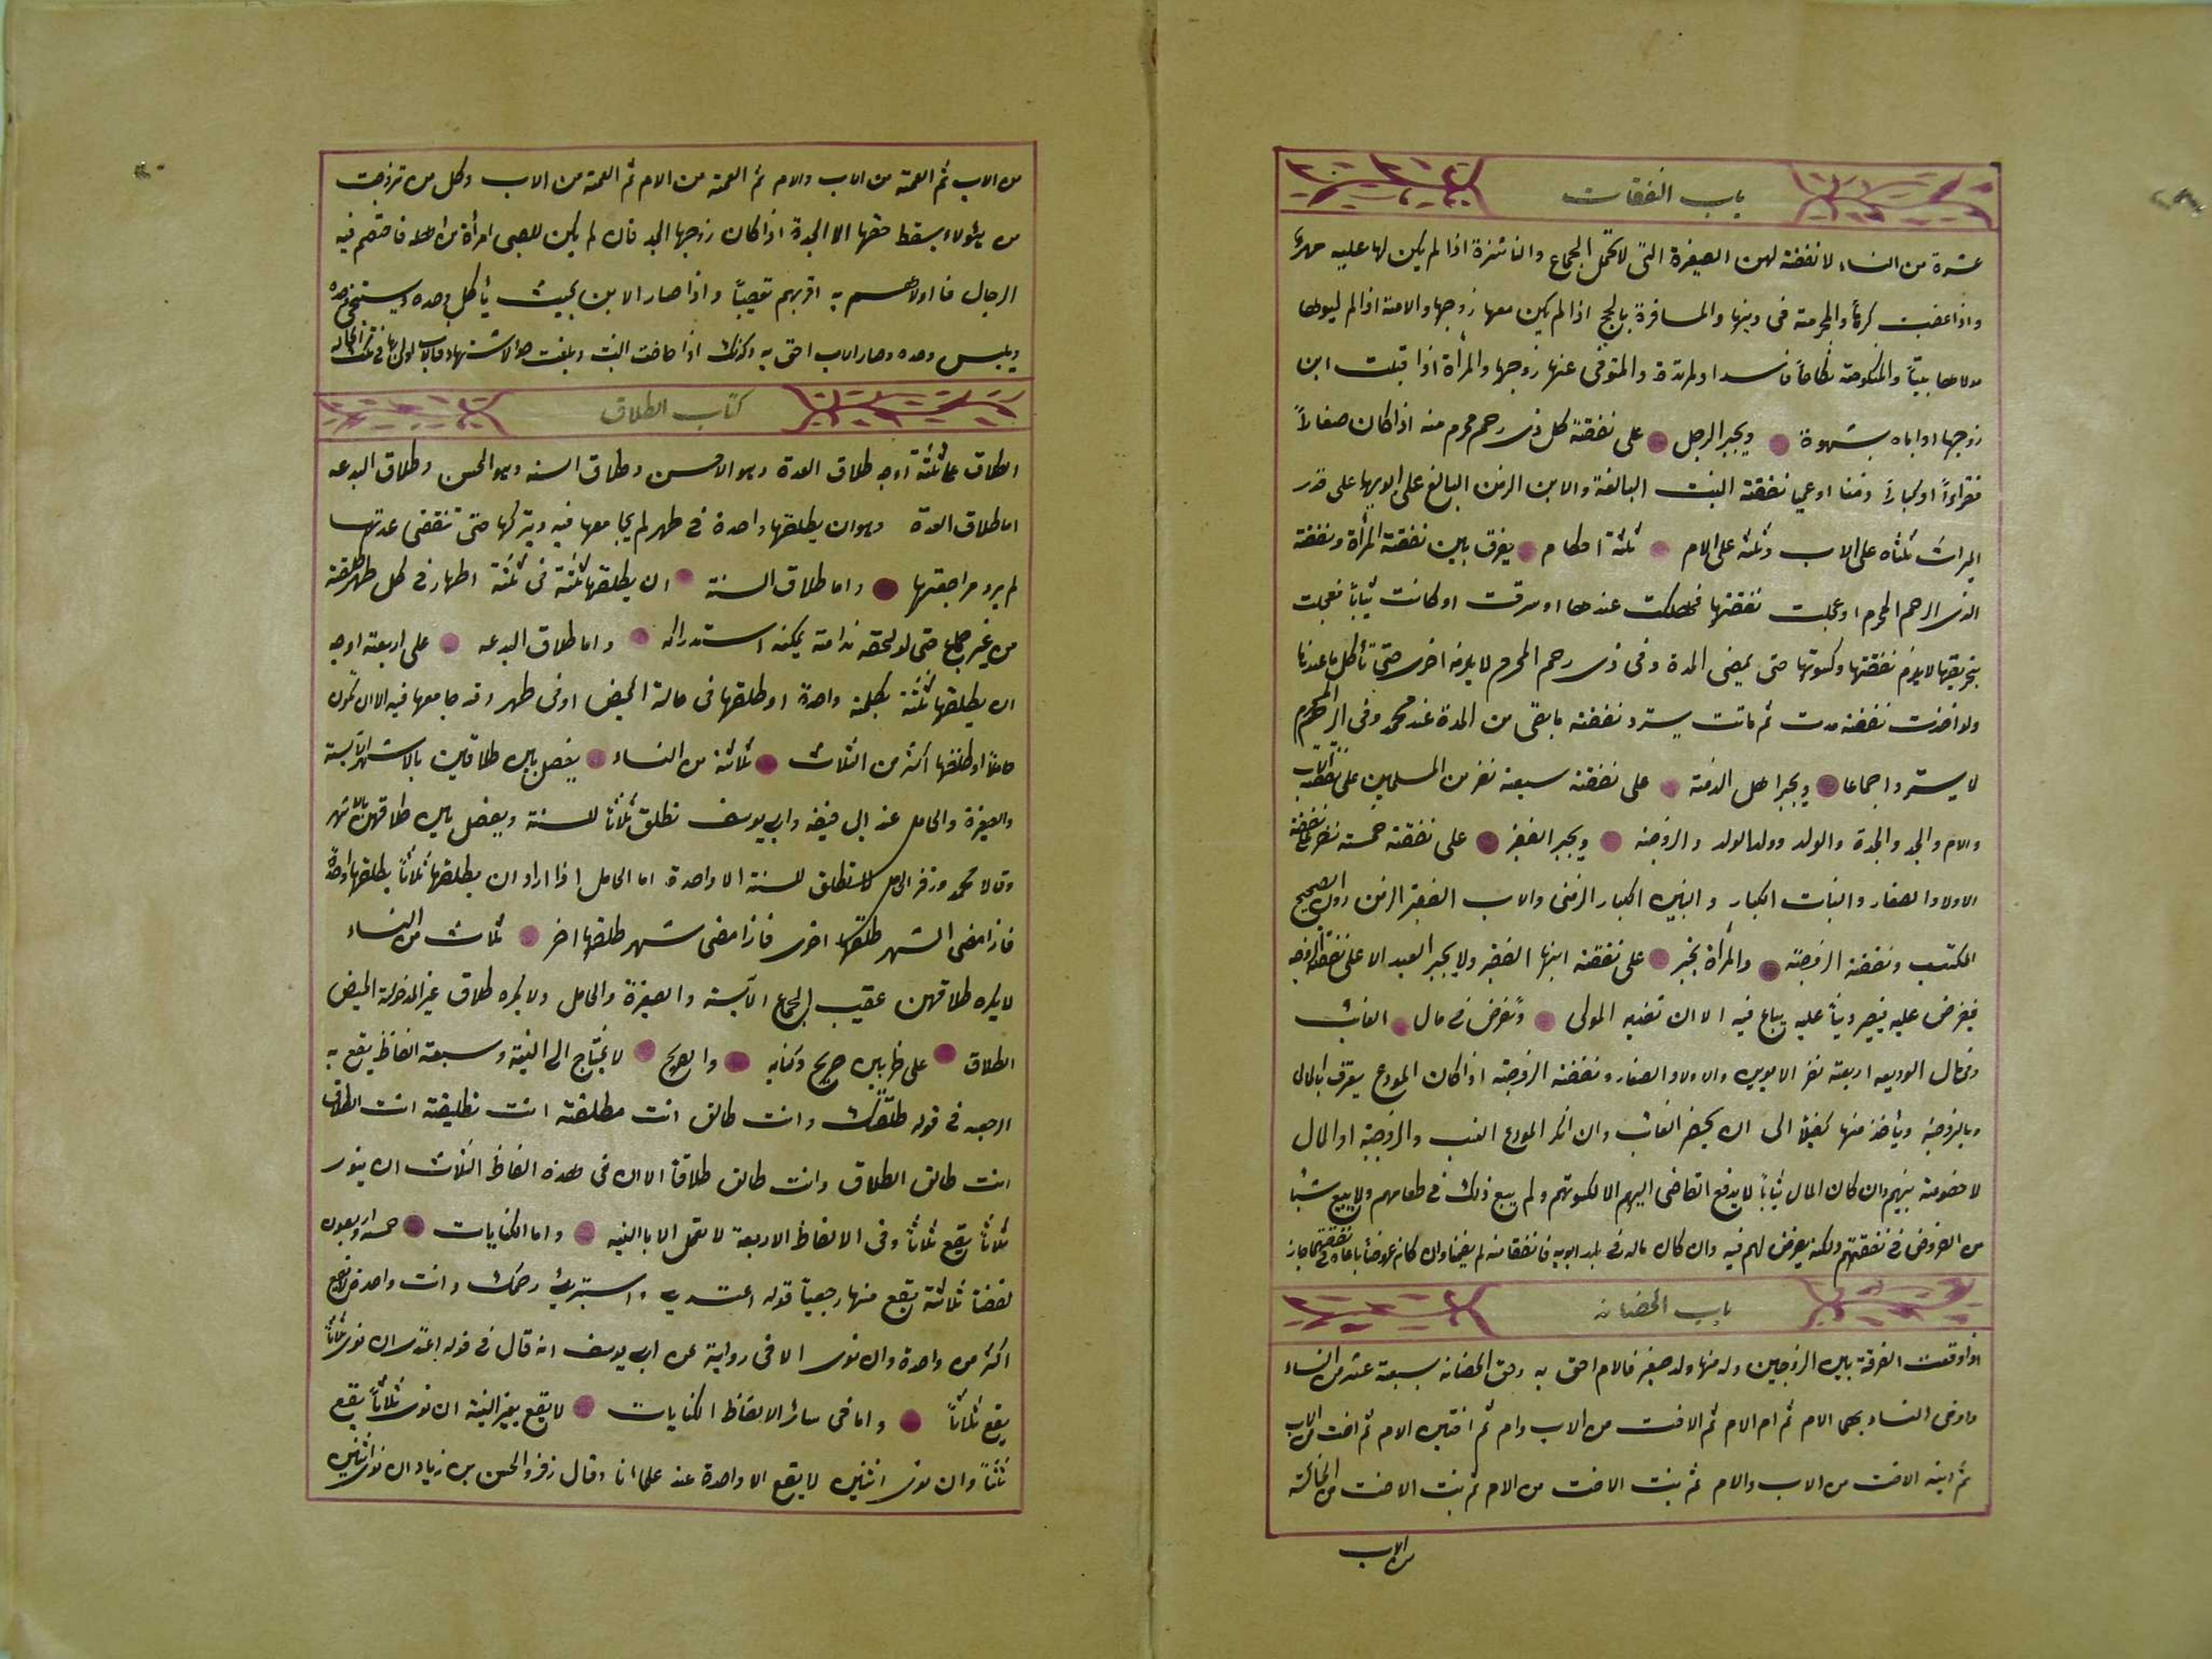 باب النفقات
عشرة من النساء لا نفقة لهن الصغيرة التى لا تحمل الجماع والناشزة اذا لم يكن لها عليه مهر
واذا غصبت كرها والمحرمة فى دينها والمسافرة بالحج اذا لم يكن معها زوجها والامة اذا لم يبوها
مولاها بيتاً والمنكوحة نكاحاً فاسدا والمرتدة والمتوفى عنها زوجها والمرأة اذا قبلت ابن
زوجها او اباه بشهوة ويجبر الرجل على نفقة كل ذى رحم محرم منه اذا كان صغاراً
فقراءاً او كباراً زمنا او عمي نفقة البنت البالغة والابن الزمن البالغ على ابويها على قدر
الميراث ثلثاه على الاب وثلثه على الام ثلثة احكام يفرق بين نفقة المرأة ونفقة
الذى الرحم المحرم او عجلت نفقتها فهلكت عندها او سرقت او كانت ثياباً فعجلت
بتخريقها لا يلزم نفقتها وكسوتها حتى يمضى المدة وفى ذى رحم المحرم لا يلزمه اخرى حتى تأكل ما عندنا
ولو اخذت نفقة مدت ثم ماتت يسترد نفقة ما بقى من المدة عند محمد وفى الرحم المحرم
لا يسترد اجماعا ويجبر اهل الذمة على نفقة سبعة نفر من المسلمين على نفقة الاب
والام والجد والجدة والولد وولد الولد والزوجة ويجبر الفقير على نفقة خمسة نفر على نفقة
الاولاد الصغار والبنات الكبار والبنين الكبار الزمنى والاب الفقير الزمن دون الصحيح
المكتسب ونفقة الزوجة والمرأة تجبر على نفقة ابنها الفقير ولا يجبر العبد الا على نفقة الزوجه
فيفرض عليه فيصير ديناً عليه يباع فيه الا ان تفديه المولى وتفرض فى مال الغائب
وفى مال الوديعه اربعة نفر الابوين والاولاد الصغار ونفقة الزوجة اذا كان المودع يعترف بالمال
وبالزوجة ويأخذ منها كفيلاً الى ان يحضر الغائب وان انكر المودع النسب والزوجية او المال
لا خصومة بينهم وان كان المال ثياباً لا يدفع القاضى اليهم الا لكسوتهم ولم يبع ذلك فى طعامهم ولا يبيع شيئا
من العروض فى نفقتهم ولكنه يفرض لهم فيه وان كان ماله فى يد ابويه فانفقا منه لم يضمنا وان كان عروضا باعا فى نفقتهما جاز
باب الحضانه
اذا وقعت الفرقة بين الزوجين وله منها ولد صغير فالام احق به وحق الحضانه سبعة عشر من النساء
واوفى النساء بهى الام ثم ام الام ثم الاخت من الاب وام ثم اختين الام ثم اخت من الاب
ثم ابنة الاخت من الاب والام ثم بنت الاخت من الام ثم بنت الاخت من الخالة
من الاب
من الاب ثم العمة من الاب والام ثم العمة من الام ثم العمة من الاب وكل من تزوجت
من هؤلاء يسقط حقها الا الجدة اذا كان زوجها الجد فان لم يكن للصبى امرأة من اهله فاختصم فيه
الرجال فاولاهم به اقربهم تعصيباً واذا صار الابن بحيث يأكل وحده ويستنجى وحده
ويلبس وحده وصار الاب احق به وكذلك اذا حاضت البنت وبلغت حد الاشتهاء فالاب اولى بها
كتاب الطلاق
الطلاق على ثلثة اوجه طلاق العدة وهو الاحسن وطلاق السنه وهو الحسن وطلاق البدعه
اما طلاق العدة وهو ان يطلقها واحدة فى طهر لم يجامعها فيه ويتركها حتى تنقضى عدتها
لم يرد مراجعتها واما طلاق السنة ان يطلقها ثلثة فى ثلثة اطهار فى كل طهر طلقة
من غير جماع حتى لو لحقه ندامة يمكنه استدراكه واما طلاق البدعه على اربعة اوجه
ان يطلقها ثلثة بكلمة واحدة او طلقها فى حالة الحيض او فى طهر وقد جامعها فيه الا ان تكون
حاملا او طلقها اكثر من الثلاث ثلاثة من النساء يفصل بين طلاقين بالاشهر الآيسة
والصغيرة والحامل عند ابى حنيفه وابى يوسف تطلق ثلاثا للسنة ويفصل بين طلاقهن بالاشهر
وقالا محمد وزفر الحامل لا تطلق للسنة الا واحدة اما الحامل اذا اراد ان يطلقها ثلاثاً يطلقها واحدة
فاذا مضى الشهر طلقها اخرى فاذا مضى شهر طلقها اخر ثلاث من النساء
لا يكره طلاقهن عقيب الجماع الآيسة والصغيرة والحامل ولا يكره طلاق غير المدخولة الحيض
الطلاق على ضربين صريح وكنايه والصريح لا يحتاج الى النية وسبعة الفاظ يقع به
الرجعه فى قوله طلقتك وانت طالق انت مطلقة انت تطليقة انت الطلاق
انت طالق الطلاق وانت طالق طلاقا الا ان فى هذه الفاظ الثلاث ان ينوى
ثلاثاً يقع ثلاثاً وفى الالفاظ الاربعة لا تعمل الا بالنيه واما الكنايات خمسة واربعون
لفظا ثلاثة يقع منها رجعياً قوله اعتدى واستبرئ رحمك وانت واحدة لا يقع
اكثر من واحدة وان نوى الا فى رواية عن ابى يوسف انه قال فى قوله اعتدى ان نوى ثلاثاً
يقع ثلاثاً واما فى سائر الالفاظ الكنايات لا يقع بغير النية ان نوى ثلاثاً يقع
ثلثاً وان نوى اثنين لا يقع الا واحدة عند علمائنا وقال زفر والحسن بن زياد ان نوى اثنين